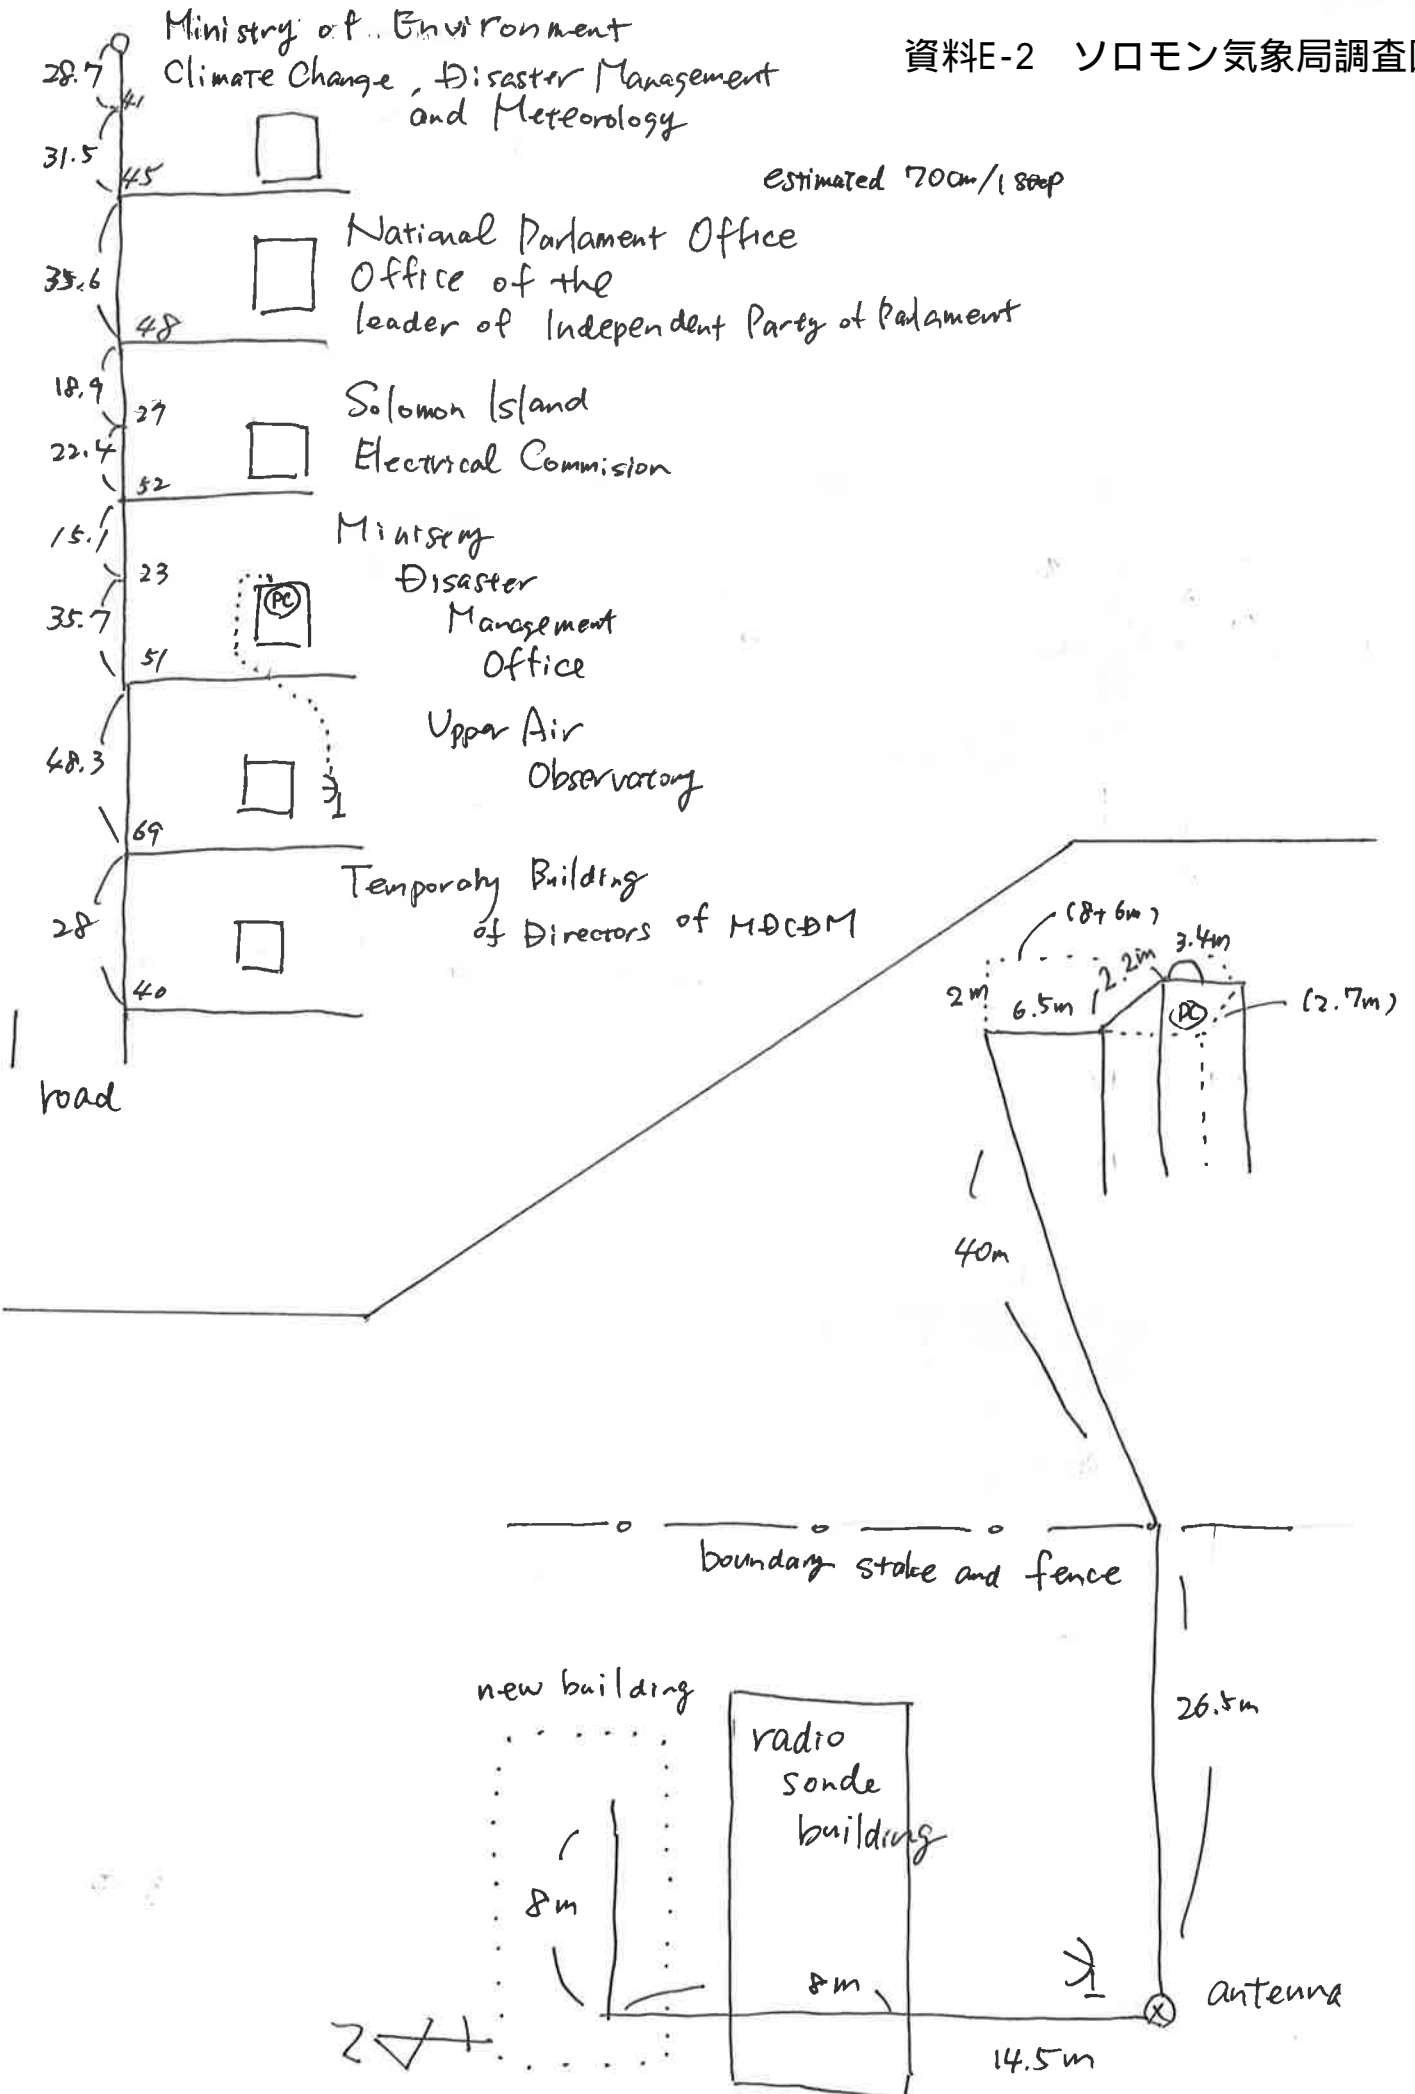 資料E-2 ソロモン気象局調査
Ministry of Environment
Climate Change, Disaster Management
and Meteorology
28.7
41
31.5
45
estimated 70cm/1 step
National Parlament Office
Office of the
leader of Independent Party of Parlament
48
18.9
27
Solomon Island
22.4
Electrical Commision
52
15.1
Ministry
23
Disaster
PC
Management
35.7
Office
51
Upper Air
Observatory
48.3
69
Temporaty Building
of Directors of MDCDM
28
40
road
(8+6m)
3.4m
2.2m
2m
6.5m
PC
(2.7m)
40m
boundary stake and fence
new building
26.5m
radio
sonde
building
8m
8m
antenna
14.5m